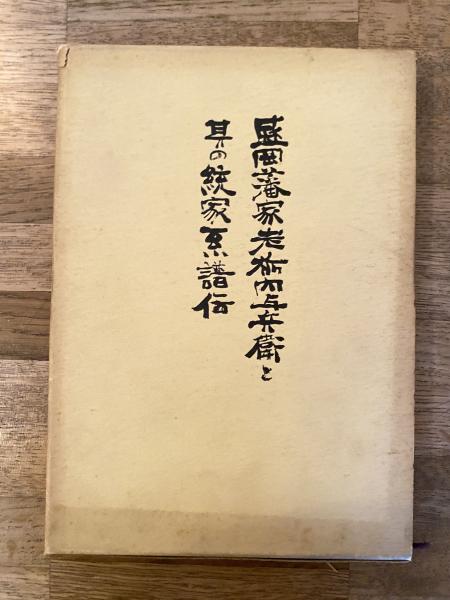 盛岡藩家老栃内与兵衛と
其の統家系譜伝